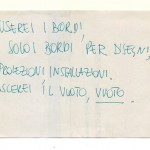 USEREI I BORDI,
SOLO I BORDI PER DISEGNI,
PROIEZIONI INSTALLAZIONI.
LASCEREI IL VUOTO, VUOTO.